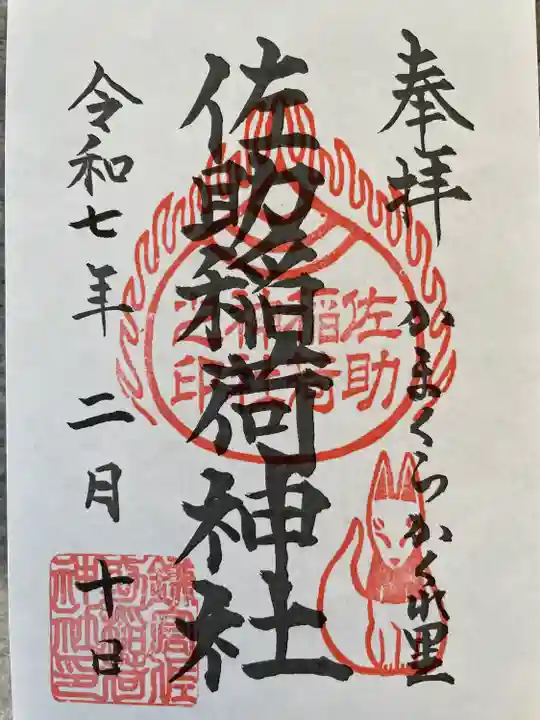 奉拝
かまくらかくれ里
佐助稲荷神社
佐助
稲荷
神社
之印
令和七年 二月 十日
鎌倉佐
助稲荷
神社印